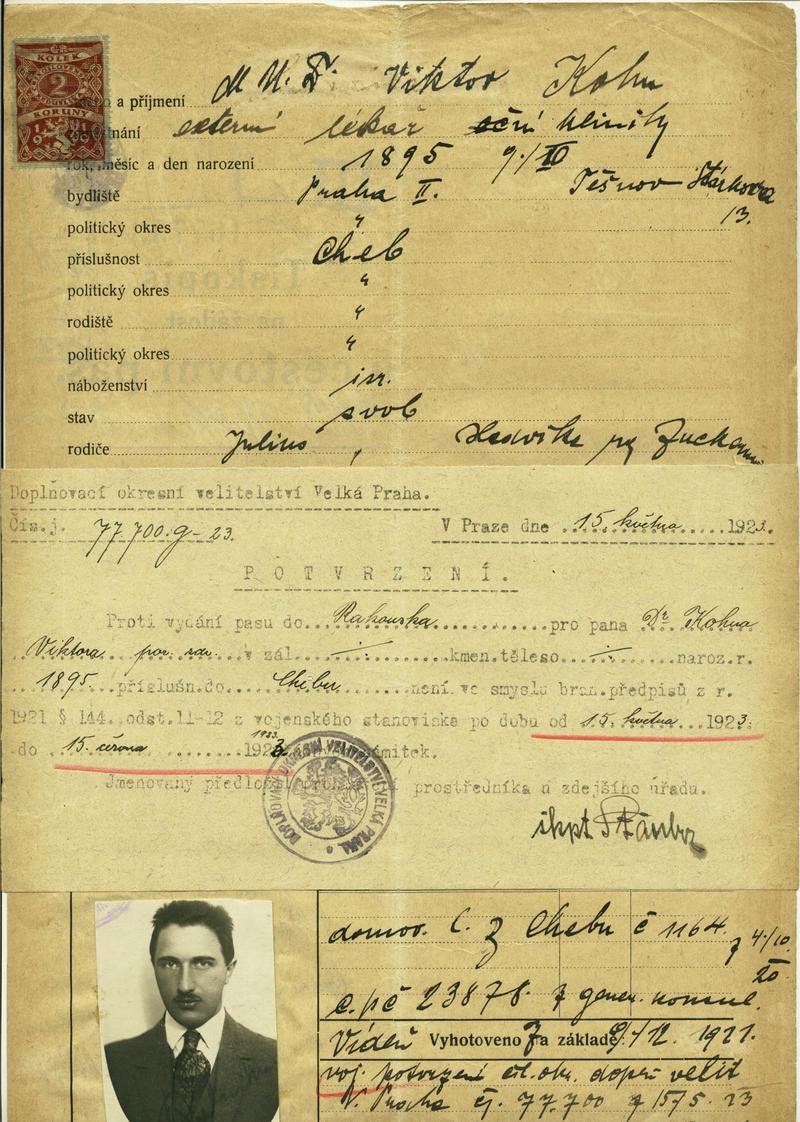 ČR.
KOLEK
2
KORUNY
M U. Dr. Viktor Kohn
a příjmení
externí lékař oční kliniky
rok, měsíc a den narození 1895 9./III
bydliště Praha II. Těšnov
13.
politický okres "
příslušnost Cheb
politický okres "
rodiště "
politický okres "
náboženství isr.
stav svob
rodiče Julius,
Doplňovací okresní velitelství Velká Praha.
Čís.j. 77.700.g-23. V Praze dne 15. května 1923.
POTVRZENÍ.
Proti vydání pasu do Rakouska pro pana Dr. Kohna
Viktora v zál. kmen.těleso naroz.r.
1895 příslušn.do Chebu není ve smyslu bran.předpisů z r.
1921 § 144. odst.11-12 z vojenského stanoviska po dobu od 15. května 1923.
do 15. června 1923 námitek.
Jmenovaný předloží prostředníka u zdejšího úřadu.
DOPLŇOVACÍ OKRESNÍ VELITELSTVÍ VELKÁ PRAHA
domov. l. z Chebu č 1164 z 4./10
20
č. pč 23878. z gener. konsul.
Vídeň Vyhotoveno na základě: 9/12. 1921.
voj. potvrzení dopň velit
v. Praha čj. 77.700 z 15/5. 23